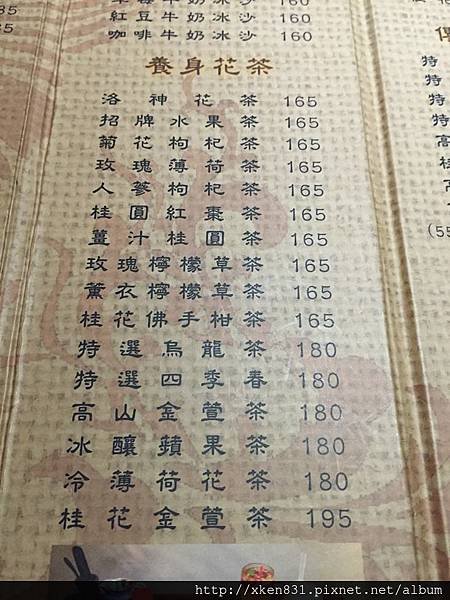 160
紅豆牛奶冰沙 160
咖啡牛奶冰沙 160
養身花茶
洛神花茶 165
招牌水果茶 165
菊花枸杞茶 165
玫瑰薄荷茶 165
人蔘枸杞茶 165
桂圓紅棗茶 165
薑汁桂圓茶 165
玫瑰檸檬草茶 165
薰衣檸檬草茶 165
桂花佛手柑茶 165
特選烏龍茶 180
特選四季春 180
高山金萱茶 180
冰釀蘋果茶 180
冷薄荷花茶 180
桂花金萱茶 195
特
特
特
特
高
桂
(55
http://xken831.pixnet.net/album